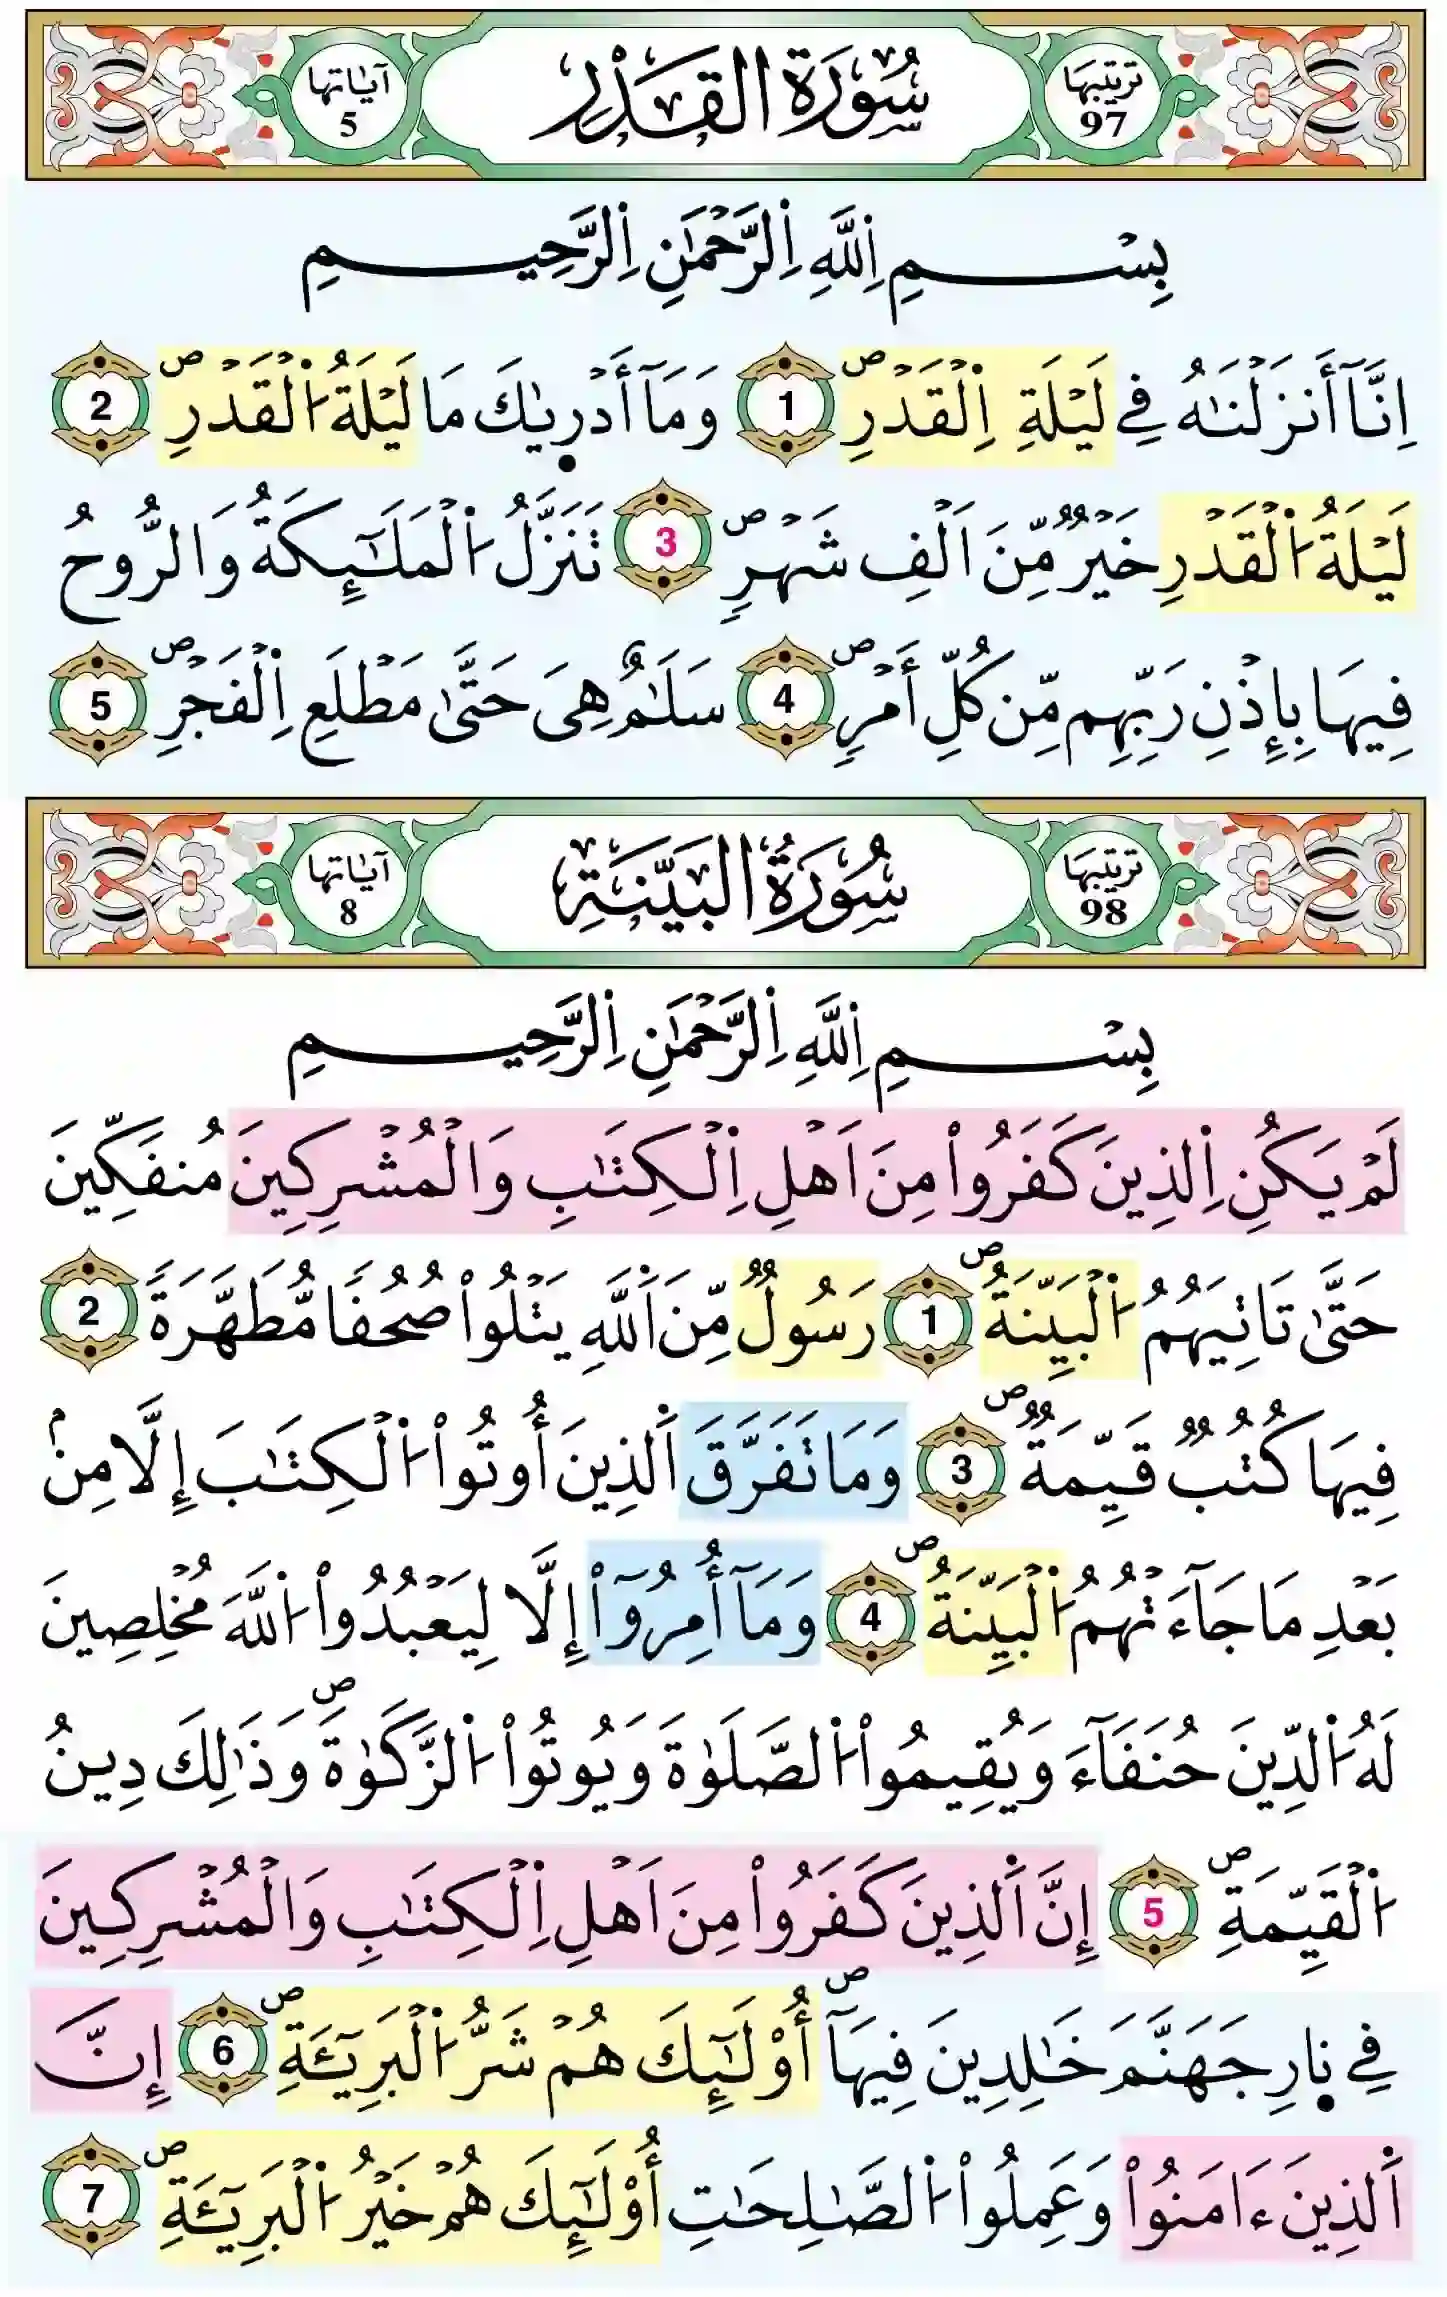 ترتيبها 97 سُورَةُ القَدْرِ آيَاتها 5
بِسْمِ اِللَّهِ اِلرَّحْمَٰنِ اِلرَّحِيمِ
اِنَّآ أَنزَلْنَٰهُ فِے لَيْلَةِ اِ۬لْقَدْرِۖ 1 وَمَآ أَدْر۪يٰكَ مَا لَيْلَةُ اُ۬لْقَدْرِۖ 2
لَيْلَةُ اُ۬لْقَدْرِ خَيْرٞ مِّنَ اَلْفِ شَهْرٖۖ 3 تَنَزَّلُ اُ۬لْمَلَٰٓئِكَةُ وَالرُّوحُ
فِيهَا بِإِذْنِ رَبِّهِم مِّن كُلِّ أَمْرٖۖ 4 سَلَٰمٌ هِيَ حَتَّىٰ مَطْلَعِ اِ۬لْفَجْرِۖ 5
ترتيبها 98 سُورَةُ البَيِّنَةِ آيَاتها 8
بِسْمِ اِللَّهِ اِلرَّحْمَٰنِ اِلرَّحِيمِ
لَمْ يَكُنِ اِ۬لذِينَ كَفَرُواْ مِنَ اَهْلِ اِ۬لْكِتَٰبِ وَالْمُشْرِكِينَ مُنفَكِّينَ
حَتَّىٰ تَاتِيَهُمُ اُ۬لْبَيِّنَةُۖ 1 رَسُولٞ مِّنَ اَ۬للَّهِ يَتْلُواْ صُحُفاٗ مُّطَهَّرَةٗ 2
فِيهَا كُتُبٞ قَيِّمَةٞۖ 3 وَمَا تَفَرَّقَ اَ۬لذِينَ أُوتُواْ اُ۬لْكِتَٰبَ إِلَّا مِنۢ
بَعْدِ مَا جَآءَتْهُمُ اُ۬لْبَيِّنَةُۖ 4 وَمَآ أُمِرُوٓاْ إِلَّا لِيَعْبُدُواْ اُ۬للَّهَ مُخْلِصِينَ
لَهُ اُ۬لدِّينَ حُنَفَآءَ وَيُقِيمُواْ اُ۬لصَّلَوٰةَ وَيُوتُواْ اُ۬لزَّكَوٰةَۖ وَذَٰلِكَ دِينُ
اُ۬لْقَيِّمَةِۖ 5 إِنَّ اَ۬لذِينَ كَفَرُواْ مِنَ اَهْلِ اِ۬لْكِتَٰبِ وَالْمُشْرِكِينَ
فِے ن۪ارِ جَهَنَّمَ خَٰلِدِينَ فِيهَآۖ أُوْلَٰٓئِكَ هُمْ شَرُّ اُ۬لْبَرِيٓـَٔةِۖ 6 إِنَّ
اَ۬لذِينَ ءَامَنُواْ وَعَمِلُواْ اُ۬لصَّٰلِحَٰتِ أُوْلَٰٓئِكَ هُمْ خَيْرُ اُ۬لْبَرِيٓـَٔةِۖ 7